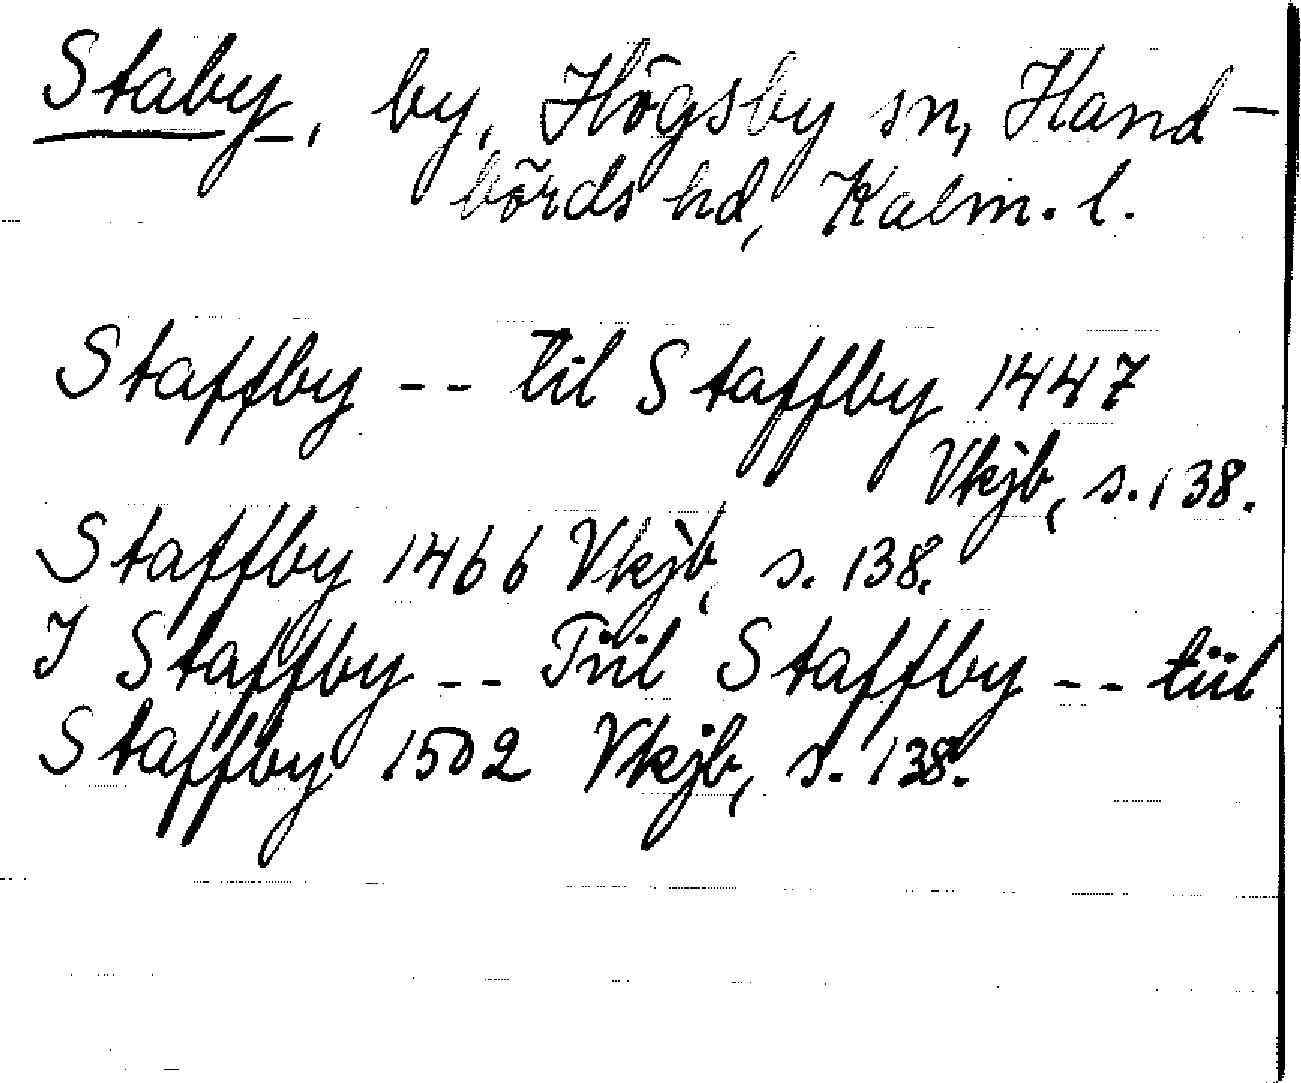 Staby, by, Högsby sn, Hand-
börds hd, Kalm. l.
Staffby -- til Staffby 1447
Vkjb, s. 138.
Staffby 1466 Vkjb, s. 138.
J Staffby -- Tiil Staffby -- tiil
Staffby 1502 Vkjb, s. 138.